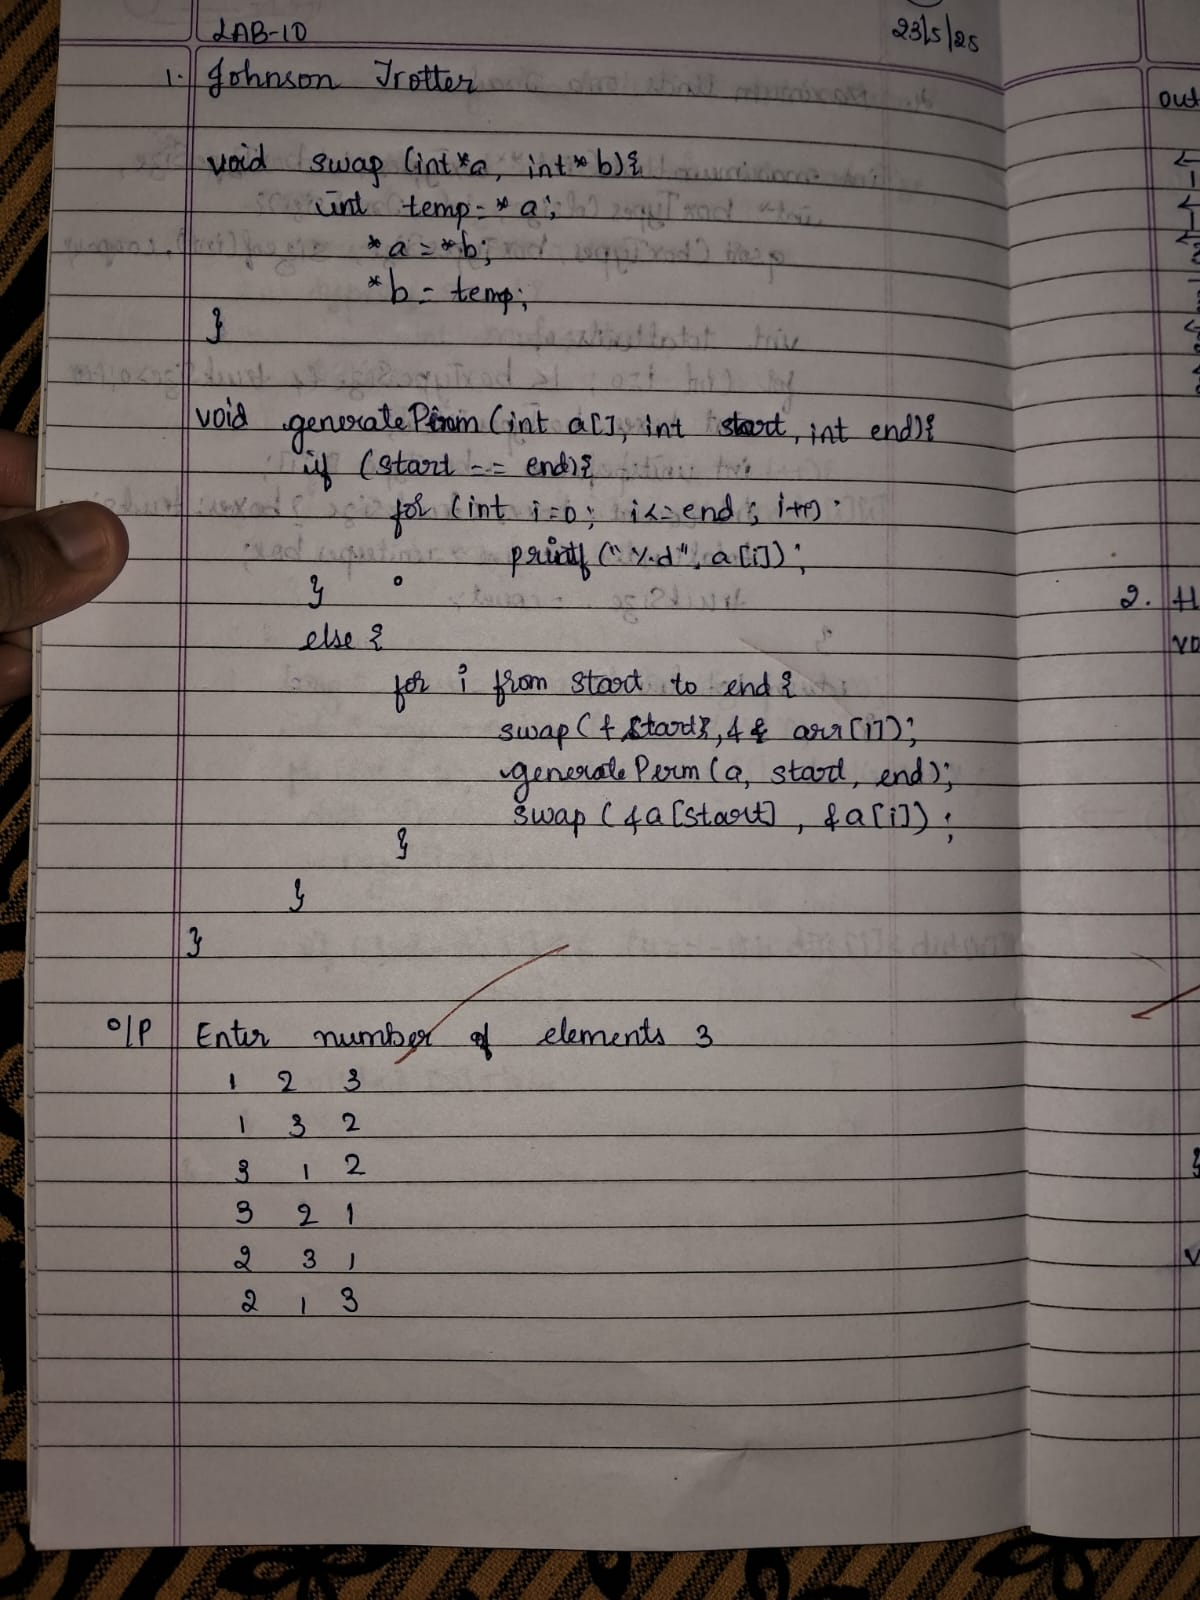 LAB-10
23/5/25
1. Johnson Trotter
void swap (int *a, int * b){
int temp = * a;
*a = *b;
*b = temp;
}
void generatePerm (int a[], int start, int end){
if (start == end){
for (int i=0; i<=end; i++)
printf ("%d", a[i]);
}
else {
for i from start to end {
swap (& start}, & & arr[i]);
generatePerm (a, start, end);
swap ( &a[start] , &a[i]) ;
}
}
}
O/P Enter number of elements 3
1 2 3
1 3 2
3 1 2
3 2 1
2 3 1
2 1 3
out
2. H
vo
}
v